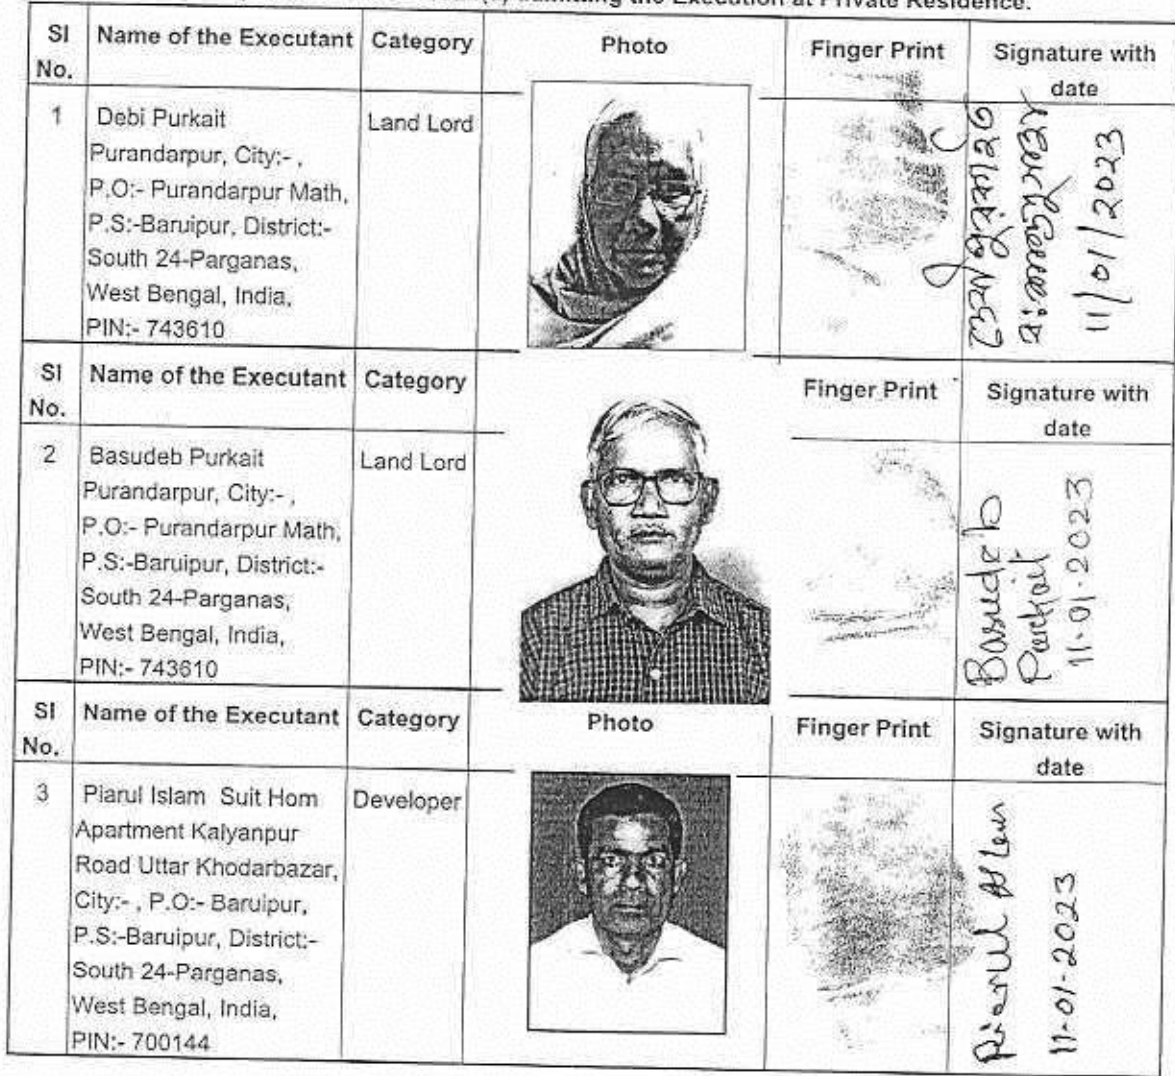 admitting the Execution at Private Residence.
Sl No. Name of the Executant Category Photo Finger Print Signature with date
1 Debi Purkait Land Lord
Purandarpur, City:- ,
P.O:- Purandarpur Math,
P.S:-Baruipur, District:-
South 24-Parganas,
West Bengal, India,
PIN:- 743610
11/01/2023
Sl No. Name of the Executant Category Finger Print Signature with date
2 Basudeb Purkait Land Lord
Purandarpur, City:- ,
P.O:- Purandarpur Math,
P.S:-Baruipur, District:-
South 24-Parganas,
West Bengal, India,
PIN:- 743610
Basudeb
Purkait
11-01-2023
Sl No. Name of the Executant Category Photo Finger Print Signature with date
3 Piarul Islam Suit Hom Developer
Apartment Kalyanpur
Road Uttar Khodarbazar,
City:- , P.O:- Baruipur,
P.S:-Baruipur, District:-
South 24-Parganas,
West Bengal, India,
PIN:- 700144
Piarul
11-01-2023